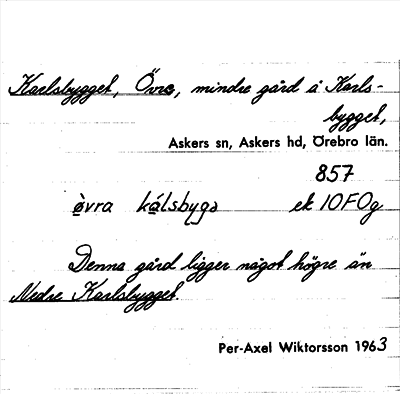 Karlsbygget, Övre, mindre gård å Karls-
bygget,
Askers sn, Askers hd, Örebro län.
857
òvra kálsbygə ek 10F0g
Denna gård ligger något högre än
Nedre Karlsbygget.
Per-Axel Wiktorsson 1963